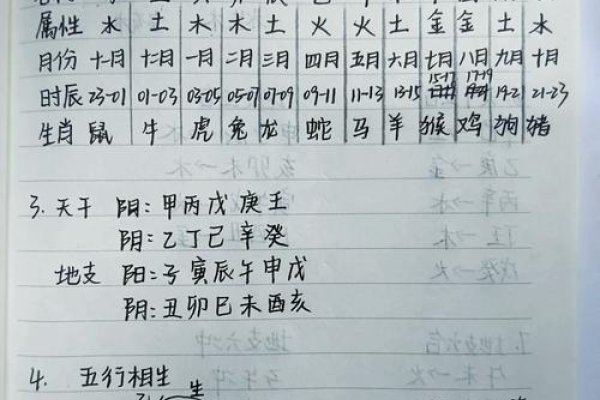 属性 水 土 木 木 土 火 火 土 金 金 土 水
月份 十一月 十二月 一月 二月 三月 四月 五月 六月 七月 八月 九月 十月
时辰 23-01 01-03 03-05 05-07 07-09 09-11 11-13 13-15 15-17 17-19 19-21 21-23
生肖 鼠 牛 虎 兔 龙 蛇 马 羊 猴 鸡 狗 猪
3. 天干 阴:甲丙戊庚王
阴:乙丁己辛癸
地支 阳:子寅辰午申戊
阴:丑卯巳未酉亥
4. 五行相生
生